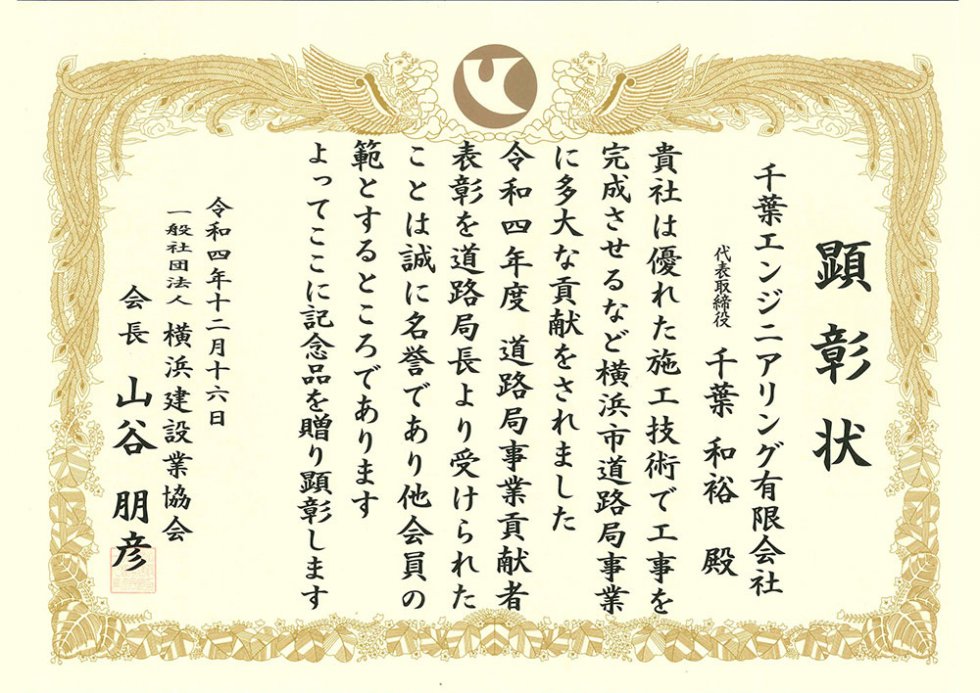 顕彰状
千葉エンジニアリング有限会社
代表取締役 千葉 和裕 殿
貴社は優れた施工技術で工事を
完成させるなど横浜市道路局事業
に多大な貢献をされました
令和四年度 道路局事業貢献者
表彰を道路局長より受けられた
ことは誠に名誉であり他会員の
範とするところであります
よってここに記念品を贈り顕彰します
令和四年十二月十六日
一般社団法人 横浜建設業協会
会長 山谷 朋彦